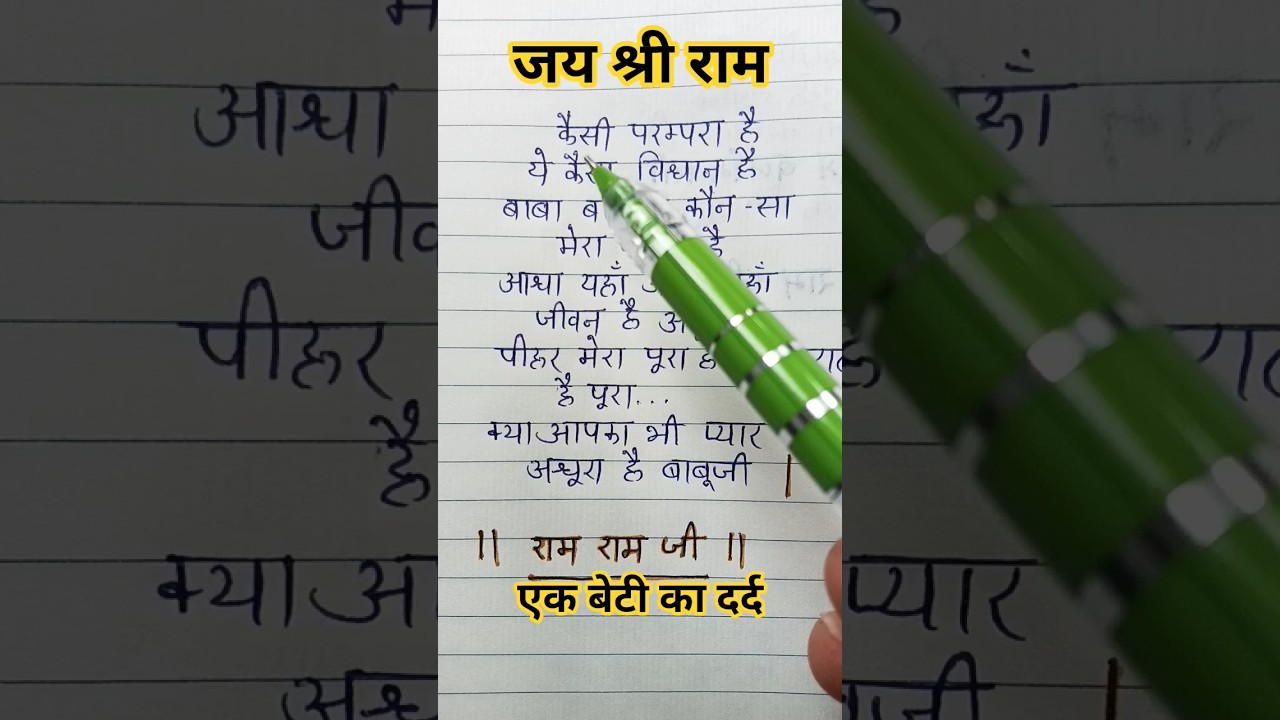 जय श्री राम
कैसी परम्परा है
ये विधान है
बाबा कौन-सा
मेरा है
आधा यहाँ
जीवन है
पीहर मेरा पूरा
है पूरा...
क्या आपका भी प्यार
अधूरा है बाबूजी |
|| राम राम जी ||
एक बेटी का दर्द